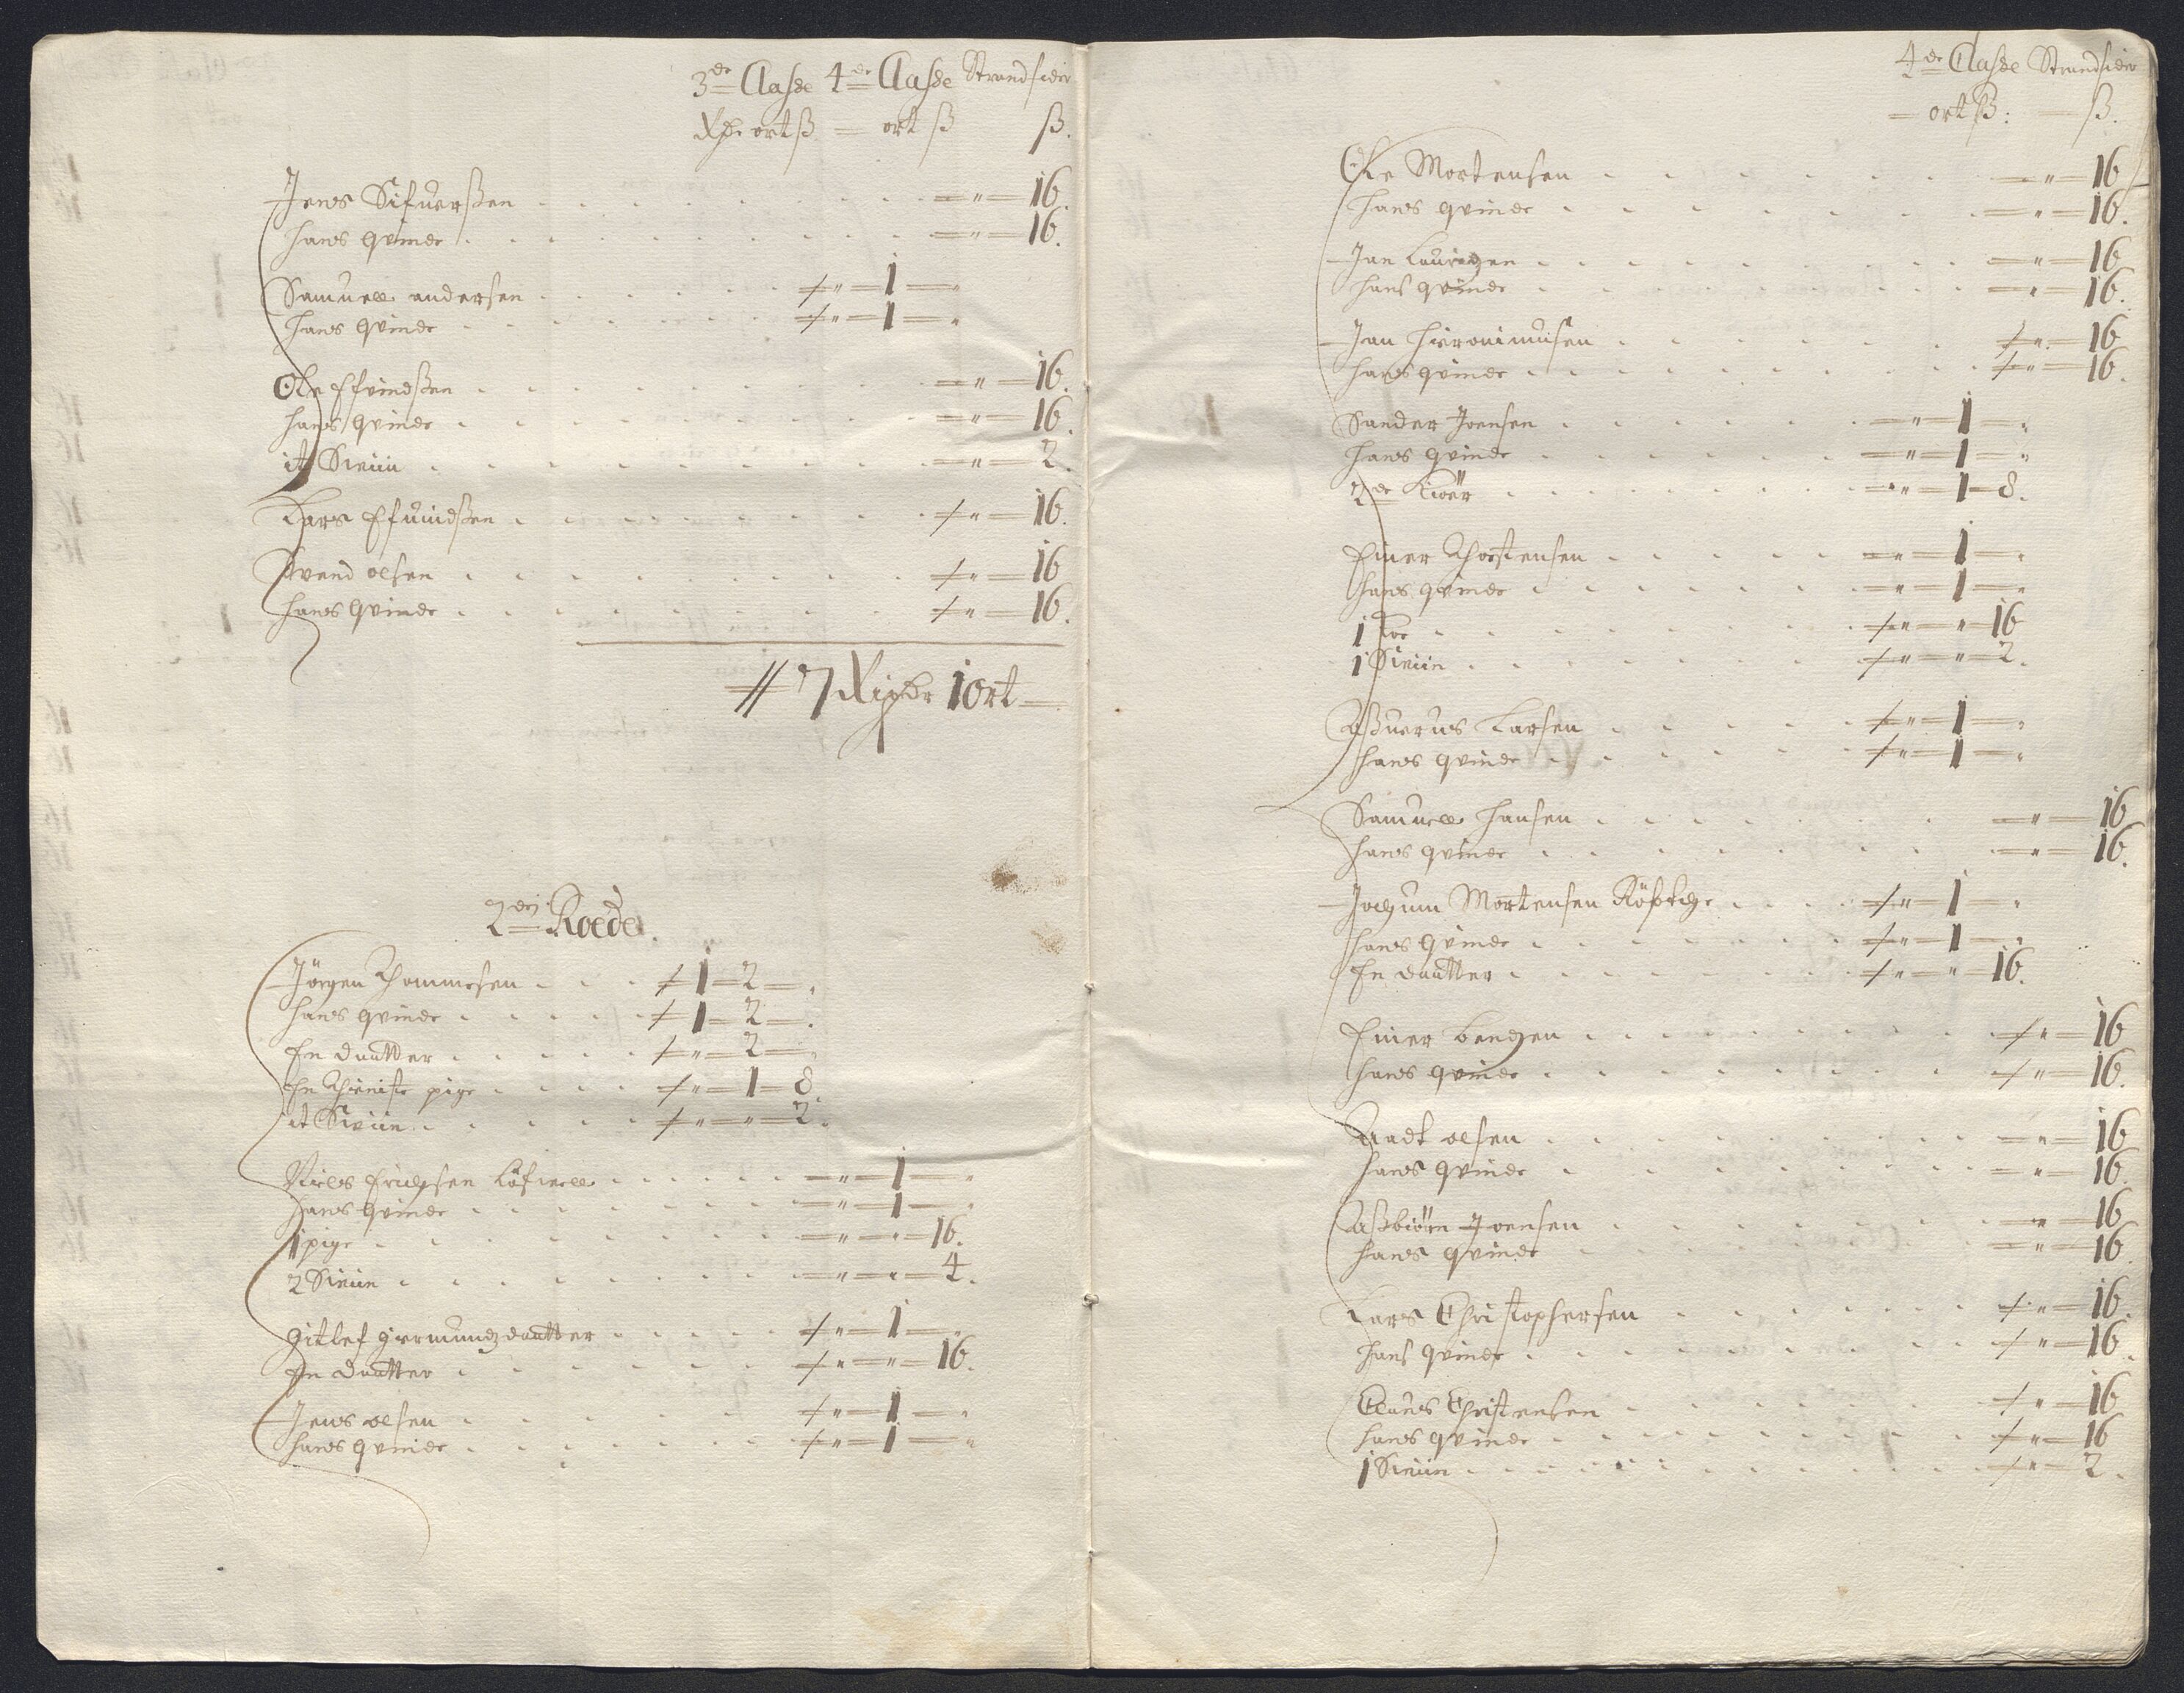 3de Classe 4de Classe Strandsider
Rdr ort ß = ort ß ß.
Jens Sifuerßen =„= 16.
hans qvinde =„= 16.
Samuell andersen „ 1 „
hans qvinde „ 1 „
Ole Efvindßen =„= 16.
hans qvinde =„= 16.
it Sviin =„= 2.
Lars Efvindßen „ 16.
Svend olsen „ 16
hans qvinde „ 16.
// 7 Rixdr 1 ort
2den Roede.
Jörgen Thommesen 1 2 „
hans qvinde 1 2 „
En daatter „ 2 „
En Thieniste pige „ 1 8.
it Sviin „ „ 2.
Niels Erichsen „ 1 „
hans qvinde „ 1 „
1 pige „ „ 16.
2 Sviin „ „ 4.
Gitlef giermundzdaatter „ 1 „
En daatter „ „ 16.
Jens olsen „ 1 „
hans qvinde „ 1 „
4de Classe Strandsider
= ort ß: = ß.
Ole Mortensen „ 16
hans qvinde „ 16.
Jan Lauridzen „ 16
hans qvinde „ 16.
Jan Hieronimusen „ 16
hans qvinde „ 16.
Sander Joensen „ 1 „
hans qvinde „ 1 „
2de Kiöer „ 1 8.
Einer Thorstensen „ 1 „
hans qvinde „ 1 „
1 Koe „ „ 16
1 Sviin „ „ 2.
Aßuerus Larsen „ 1 „
hans qvinde „ 1 „
Samuell hansen „ 16
hans qvinde „ 16.
Jochum Mortensen „ 1 „
hans qvinde „ 1 „
En daatter „ „ 16.
Einer bendzen „ 16
hans qvinde „ 16.
olsen „ 16
hans qvinde „ 16.
Aßbiörn Joensen „ 16
hans qvinde „ 16.
Lars Christophersen „ 16.
hans qvinde „ 16.
Claus Christensen „ 16
hans qvinde „ 16
1 Sviin „ 2.